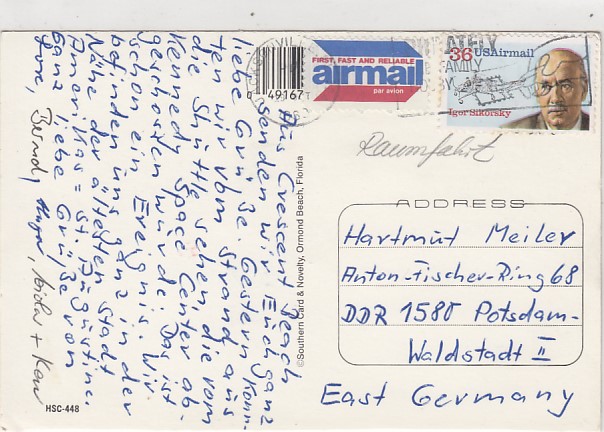 Aus Crescent Beach
senden wir Euch ganz
liebe Grüße. Gestern konn-
ten wir vom Strand aus
die Shüttle sehen, die vom
Kennedy Space Center ab-
geschossen wurde. Das ist
schon ein Ereignis. Wir
befinden uns ganz in der
Nähe der ältesten Stadt
Amerikas = St. Augustine.
Ganz liebe Grüße von
Bernd,
FIRST, FAST AND RELIABLE
airmail
par avion
0 49167
36 USAirmail
Igor Sikorsky
Raumfahrt
ADDRESS
Hartmut Meiler
Anton-Fischer-Ring 68
DDR 1580 Potsdam-
Waldstadt II
East Germany
©Southern Card & Novelty, Ormond Beach, Florida
HSC-448